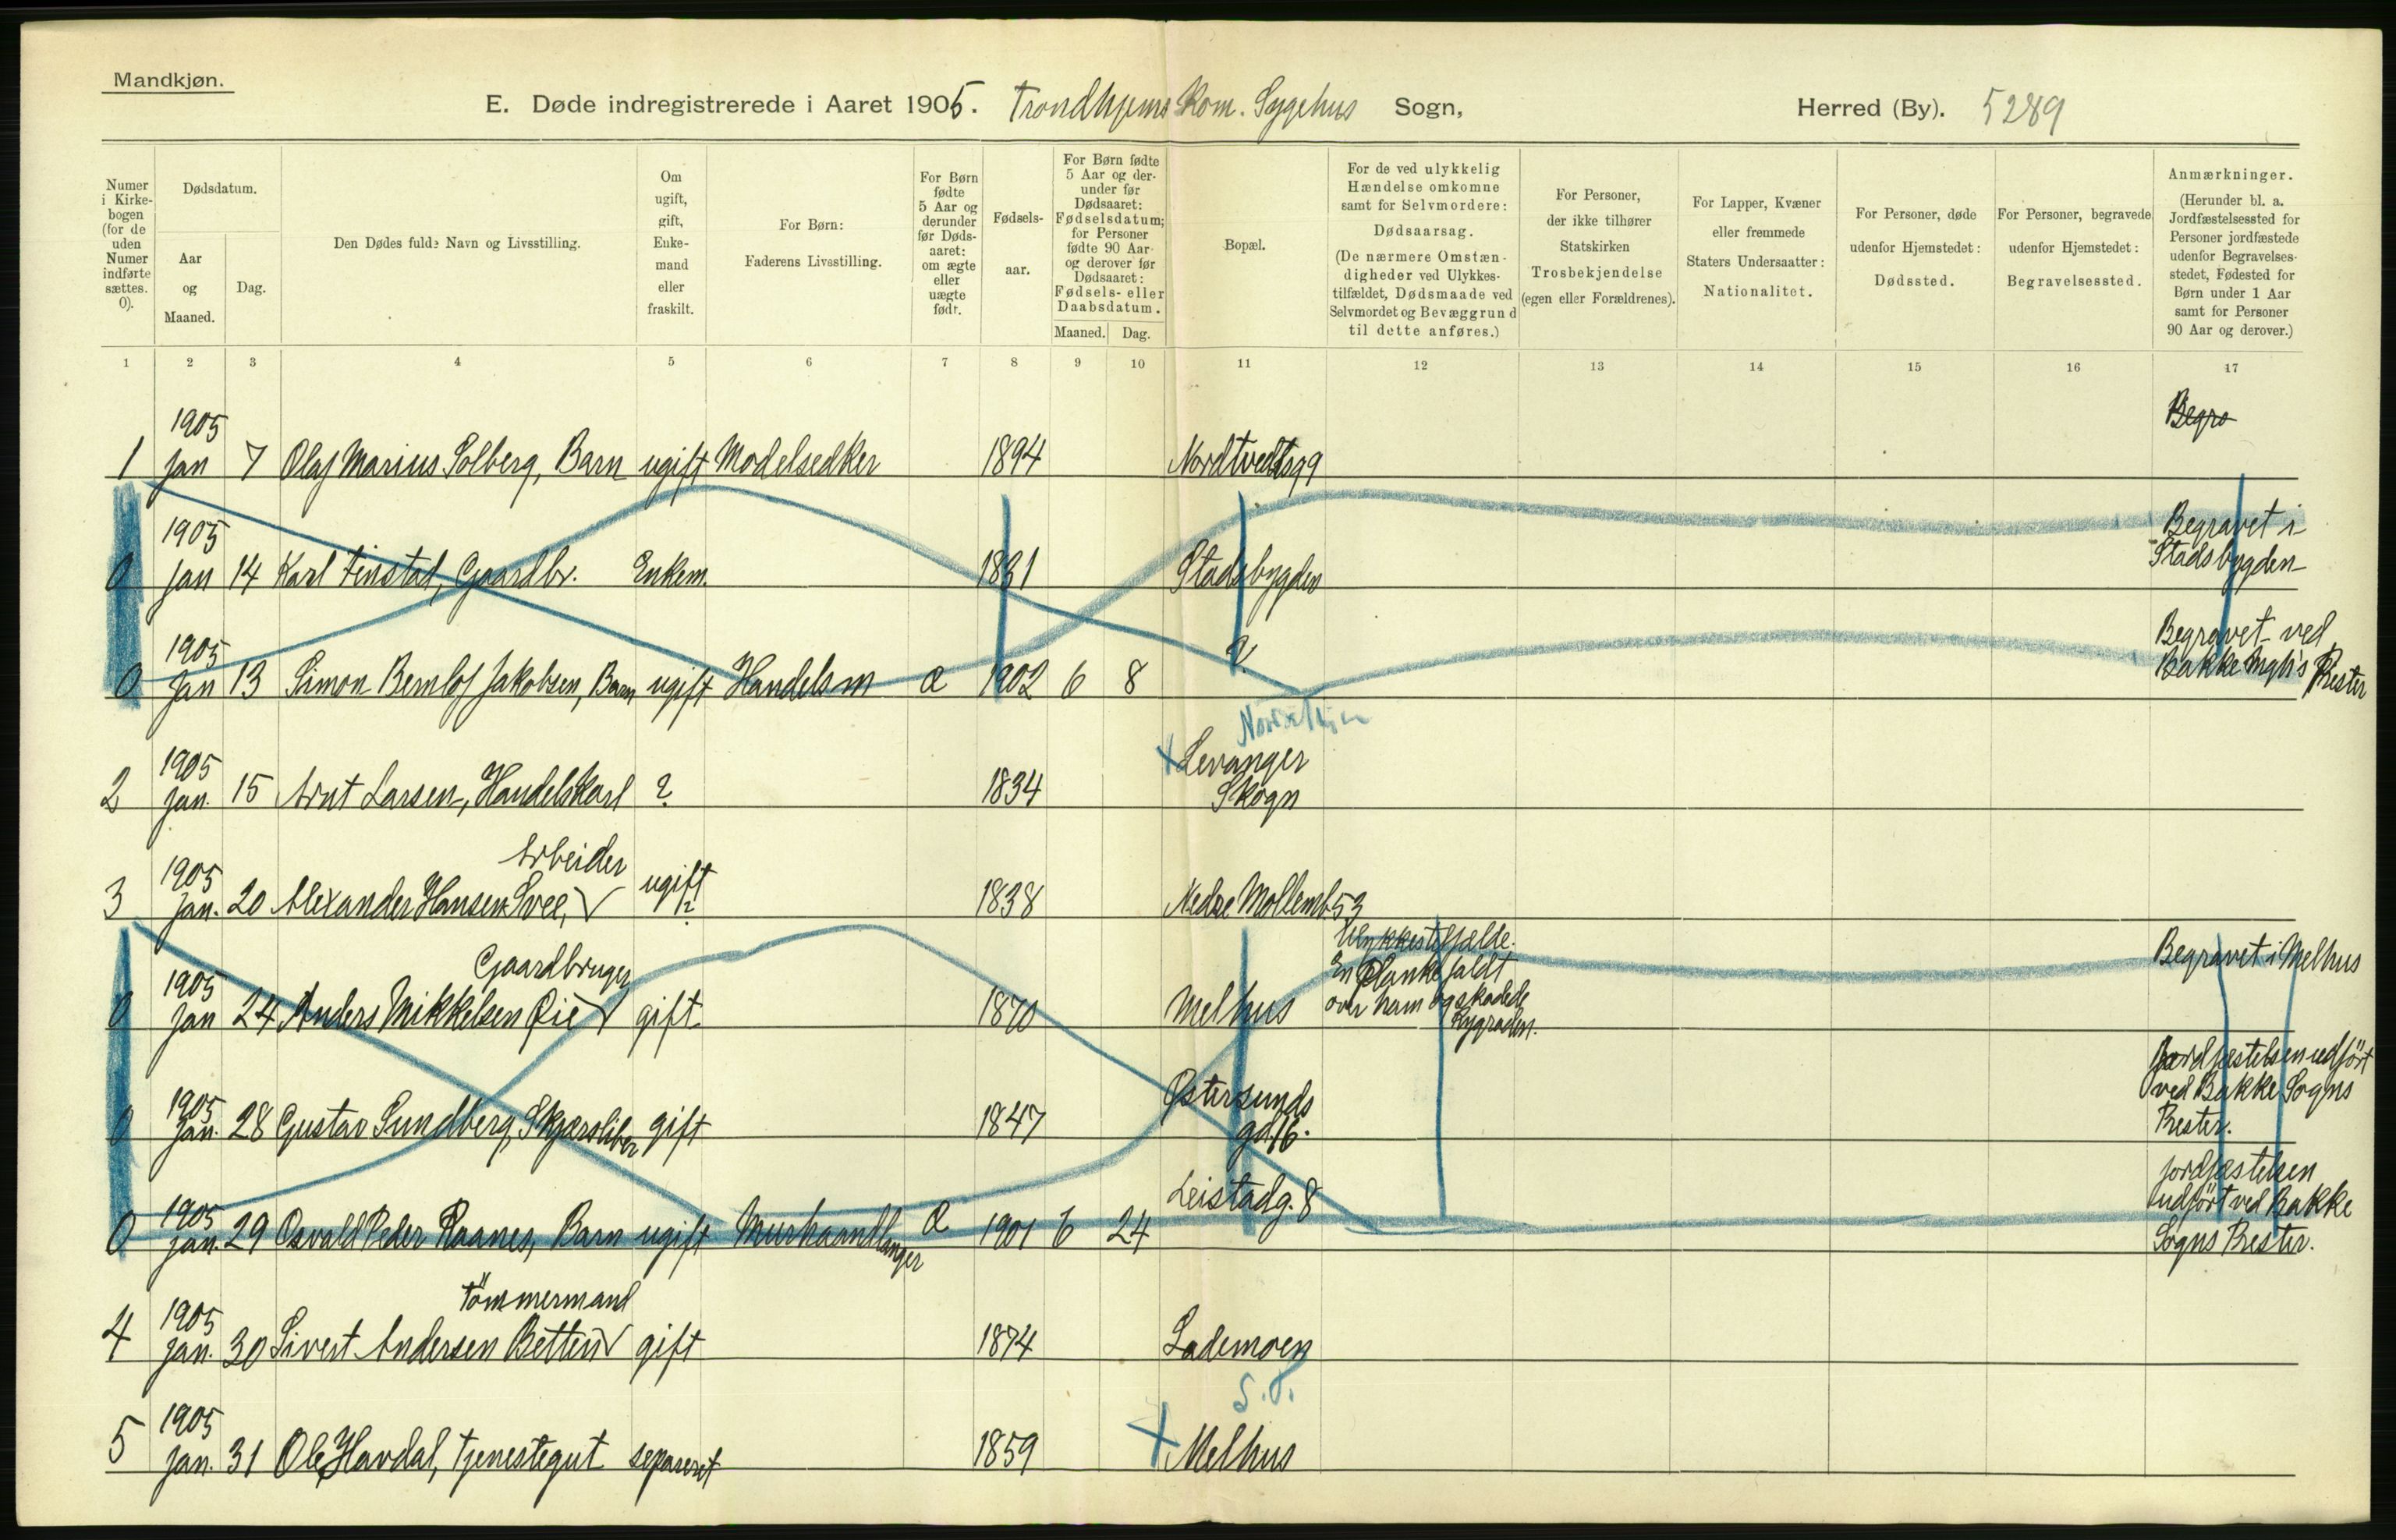 Mandkjøn.
E. Døde indregistrerede i Aaret 1905. Trondhjems Kom. Sygehus Sogn, Herred (By). 5289
Numer i Kirkebogen (for de uden Numer indførte sættes. 0).
Dødsdatum.
Aar og Maaned.
Dag.
Den Dødes fulde Navn og Livsstilling.
Om ugift, gift, Enkemand eller fraskilt.
For Børn: Faderens Livsstilling.
For Børn fødte 5 Aar og derunder før Dødsaaret: om ægte eller uægte født.
Fødselsaar.
For Børn fødte 5 Aar og derunder før Dødsaaret: Fødselsdatum; for Personer fødte 90 Aar og derover før Dødsaaret: Fødsels- eller Daabsdatum.
Maaned. Dag.
Bopæl.
For de ved ulykkelig Hændelse omkomne samt for Selvmordere: Dødsaarsag. (De nærmere Omstændigheder ved Ulykkestilfældet, Dødsmaade ved Selvmordet og Bevæggrund til dette anføres.)
For Personer, der ikke tilhører Statskirken Trosbekjendelse (egen eller Forældrenes).
For Lapper, Kvæner eller fremmede Staters Undersaatter: Nationalitet.
For Personer, døde udenfor Hjemstedet: Dødssted.
For Personer, begravede udenfor Hjemstedet: Begravelsessted.
Anmærkninger. (Herunder bl. a. Jordfæstelsessted for Personer jordfæstede udenfor Begravelsesstedet, Fødested for Børn under 1 Aar samt for Personer 90 Aar og derover.)
1 2 3 4 5 6 7 8 9 10 11 12 13 14 15 16 17
1905 Begra
1 Jan 7 Olaf Marius Solberg, Barn ugift 1894 Nordtvedtsg 9
1905 Begravet i
0 Jan 14 Karl Gaardbr. Enkem. 1831 Stadsbygden Stadsbygden
1905 Begravet ved
0 Jan 13 Simon Jakobsen, Barn ugift Handelsm 1902 6 8 ? Bakke Prester
1905 Levanger
2 Jan. 15 Arnt Larsen, Handelskarl ? 1834 Skogn
1905 Arbeider
3 Jan. 20 Alexander Hansen Svee, ugift ? 1838 Nedre Mollenb 53
1905 Gaardbruger Ulykkestilfælde. Begravet i Melhus
En Planke faldt
0 Jan 24 Anders Mikkelsen Øie gift 1870 Melhus over ham og skadede
Rygraden.
1905 Østersunds Jordfæstelsen udført
0 Jan. 28 Gustav Sundberg, Skjærsliber gift 1847 gd. 16. ved Bakke Sogns
Prester.
1905 Leistadg. 8 Jordfæstelsen
0 Jan. 29 Osvald Peder Raanes, Barn ugift Murhaandlanger 1901 6 24 udført ved Bakke
Sogns Prester.
1905 Tömmermand
4 Jan. 30 Sivert Andersen Betten gift 1874 Lademoen
1905 S.T.
5 Jan. 31 Ole Havdal, Tjenestegut separert 1859 Melhus